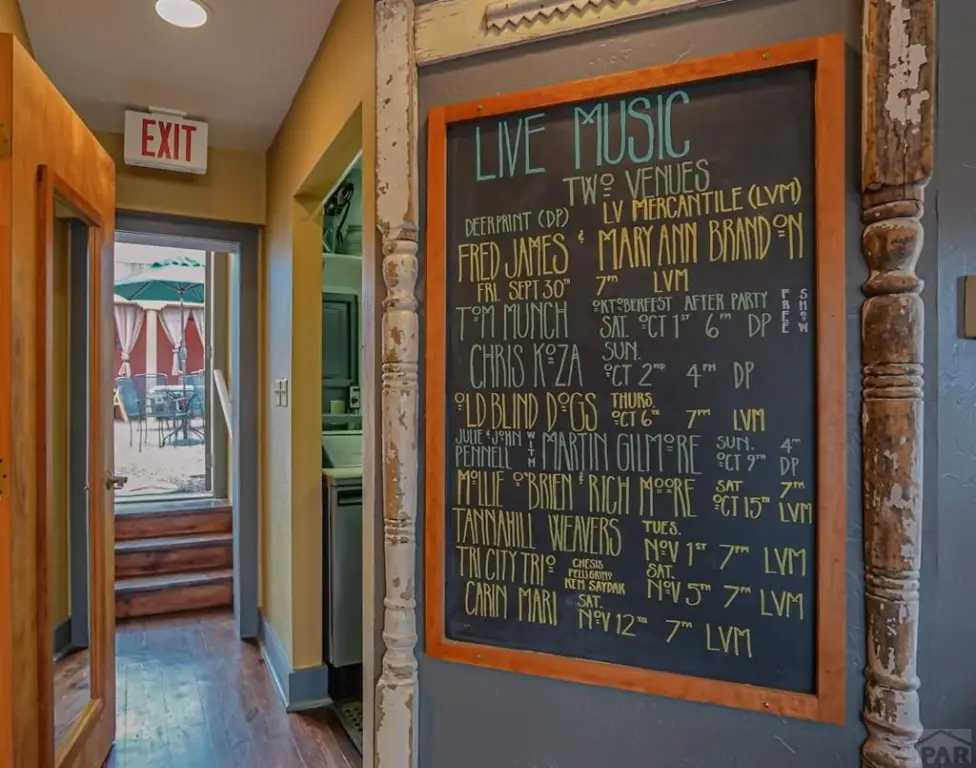 EXIT
LIVE MUSIC
TWO VENUES
DEERPRINT (DP) LV MERCANTILE (LVM)
FRED JAMES & MARY ANN BRANDON
FRI. SEPT 30TH 7PM LVM
TOM MUNCH OKTOBERFEST AFTER PARTY
SAT. OCT 1ST 6PM DP FREE SHOW
CHRIS KOZA SUN.
OCT 2ND 4PM DP
OLD BLIND DOGS THURS.
OCT 6TH 7PM LVM
JULIE & JOHN PENNELL WITH MARTIN GILMORE SUN. OCT 9TH 4PM DP
MOLLIE O'BRIEN & RICH MOORE SAT OCT 15TH 7PM LVM
TANNAHILL WEAVERS TUES.
NOV 1ST 7PM LVM
TRI CITY TRIO CHESIS PELLIGRINO KEM SAYDAK SAT.
NOV 5TH 7PM LVM
CARIN MARI SAT.
NOV 12TH 7PM LVM
PAR